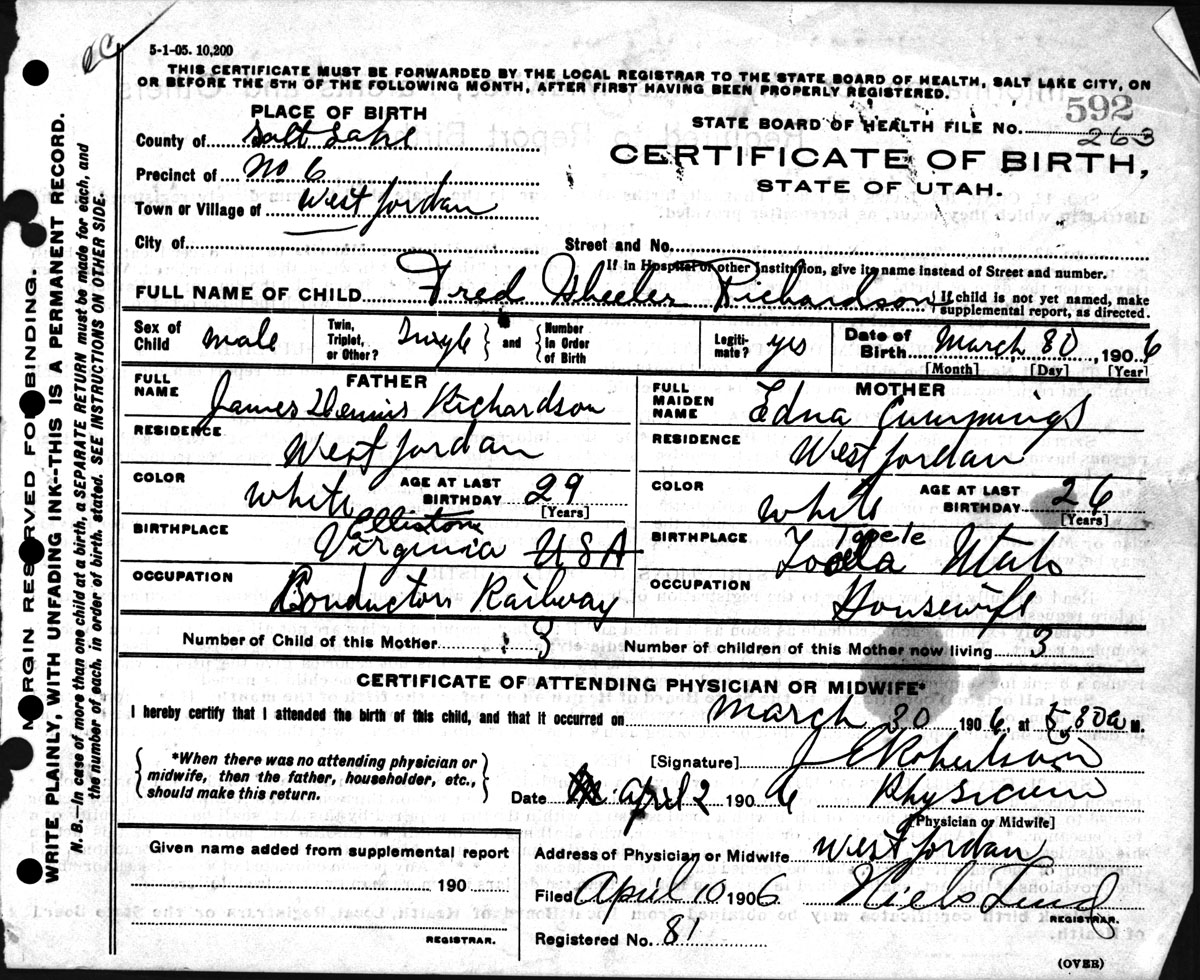 5-1-05. 10,200
THIS CERTIFICATE MUST BE FORWARDED BY THE LOCAL REGISTRAR TO THE STATE BOARD OF HEALTH, SALT LAKE CITY, ON
OR BEFORE THE 5TH OF THE FOLLOWING MONTH, AFTER FIRST HAVING BEEN PROPERLY REGISTERED.
592
PLACE OF BIRTH
STATE BOARD OF HEALTH FILE NO. 263
County of Salt Lake
CERTIFICATE OF BIRTH,
Precinct of No 6
STATE OF UTAH.
Town or Village of West Jordan
City of
Street and No.
If in Hospital or other Institution, give its name instead of Street and number.
FULL NAME OF CHILD Fred Wheeler Richardson
If child is not yet named, make supplemental report, as directed.
Sex of Child male
Twin, Triplet, or Other? Single and Number in Order of Birth
Legitimate? yes
Date of Birth March 30, 1906
[Month] [Day] [Year]
FATHER
FULL NAME James Dennis Richardson
RESIDENCE West Jordan
COLOR white
AGE AT LAST BIRTHDAY 29
[Years]
BIRTHPLACE Elliston Virginia USA
OCCUPATION Conductor Railway
MOTHER
FULL MAIDEN NAME Edna Cummings
RESIDENCE West Jordan
COLOR white
AGE AT LAST BIRTHDAY 26
[Years]
BIRTHPLACE Tooele Utah
OCCUPATION Housewife
Number of Child of this Mother 3
Number of children of this Mother now living 3
CERTIFICATE OF ATTENDING PHYSICIAN OR MIDWIFE*
I hereby certify that I attended the birth of this child, and that it occurred on March 30 1906 at 5 30 a M.
*When there was no attending physician or midwife, then the father, householder, etc., should make this return.
[Signature] J Robertson
Date April 2 1906 Physician
[Physician or Midwife]
Given name added from supplemental report
190
REGISTRAR.
Address of Physician or Midwife West Jordan
Filed April 10 1906 Niels Lind
REGISTRAR.
Registered No. 81
(OVER)
MARGIN RESERVED FOR BINDING.
WRITE PLAINLY, WITH UNFADING INK--THIS IS A PERMANENT RECORD.
N. B.—In case of more than one child at a birth, a SEPARATE RETURN must be made for each, and
the number of each, in order of birth, stated. SEE INSTRUCTIONS ON OTHER SIDE.